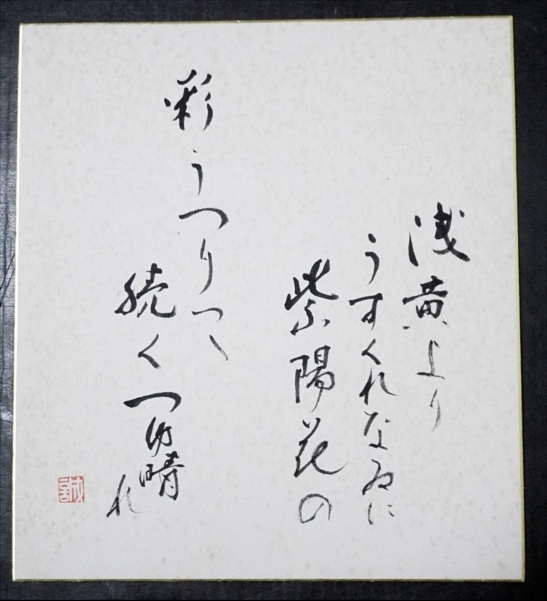 浅黄より
うすくれなゐに
紫陽花の
彩うつりつゝ
続くつゆ晴
れ
誠